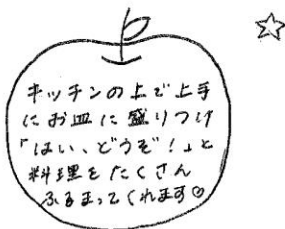 キッチンの上で上手
にお皿に盛りつけ
「はい、どうぞ！」と
料理をたくさん
ふるまってくれます♡